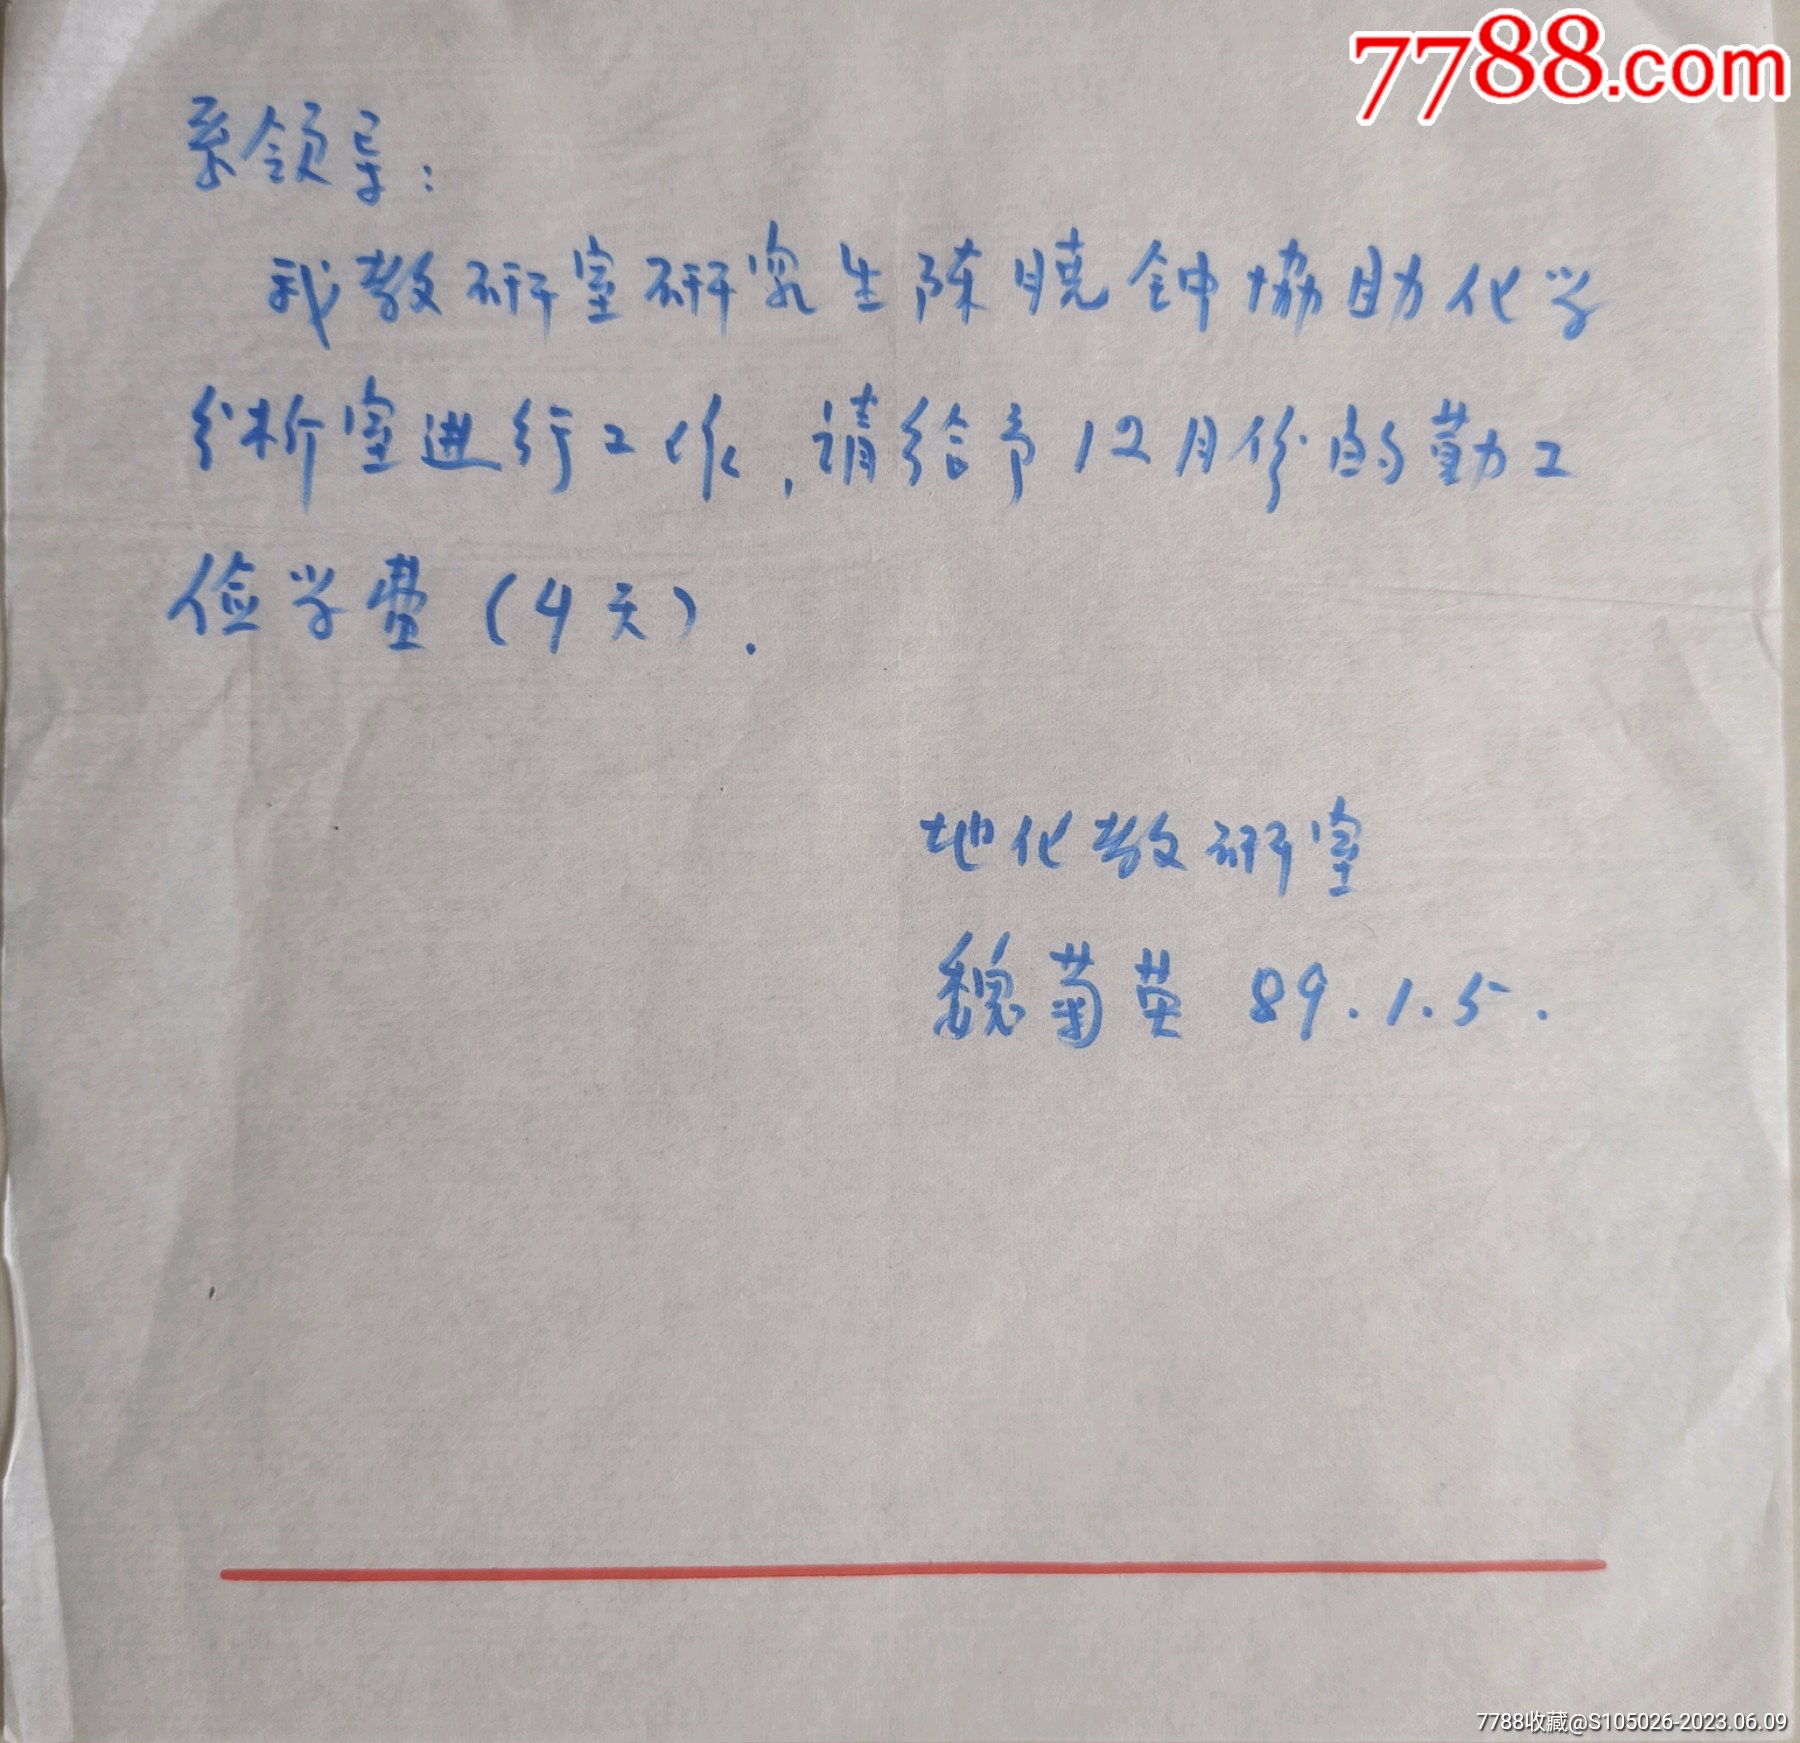 7788.com
系领导:
我教研室研究生陈晓钟协助化学
分析室进行工作,请给予12月份的勤工
俭学费(4天).
地化教研室
魏菊英 89.1.5.
7788收藏@S105026-2023.06.09